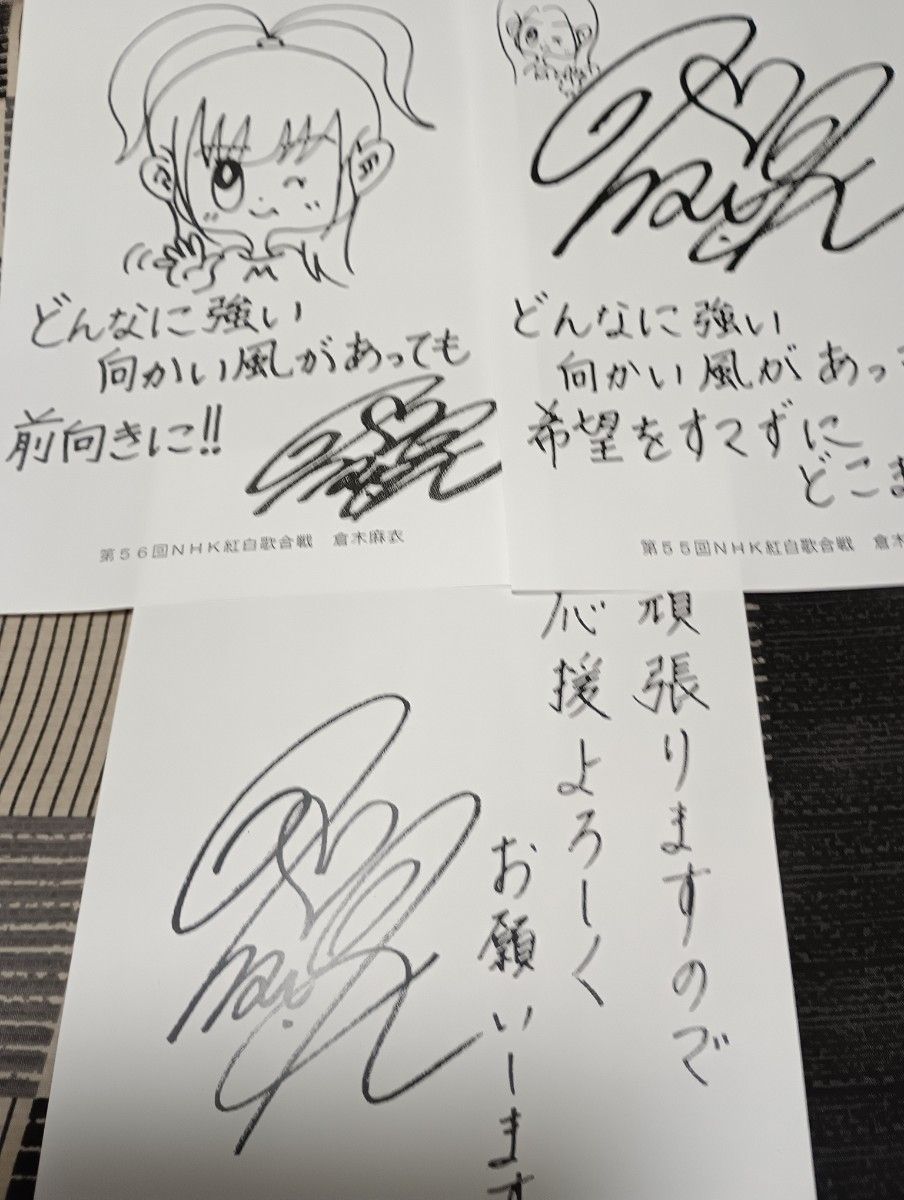 どんなに強い
向かい風があっても
前向きに!!
第56回NHK紅白歌合戦 倉木麻衣
mai.K
どんなに強い
向かい風があっ
希望をすてずに
どこま
第55回NHK紅白歌合戦 倉
頑張りますので
応援よろしく
お願いします
mai.K